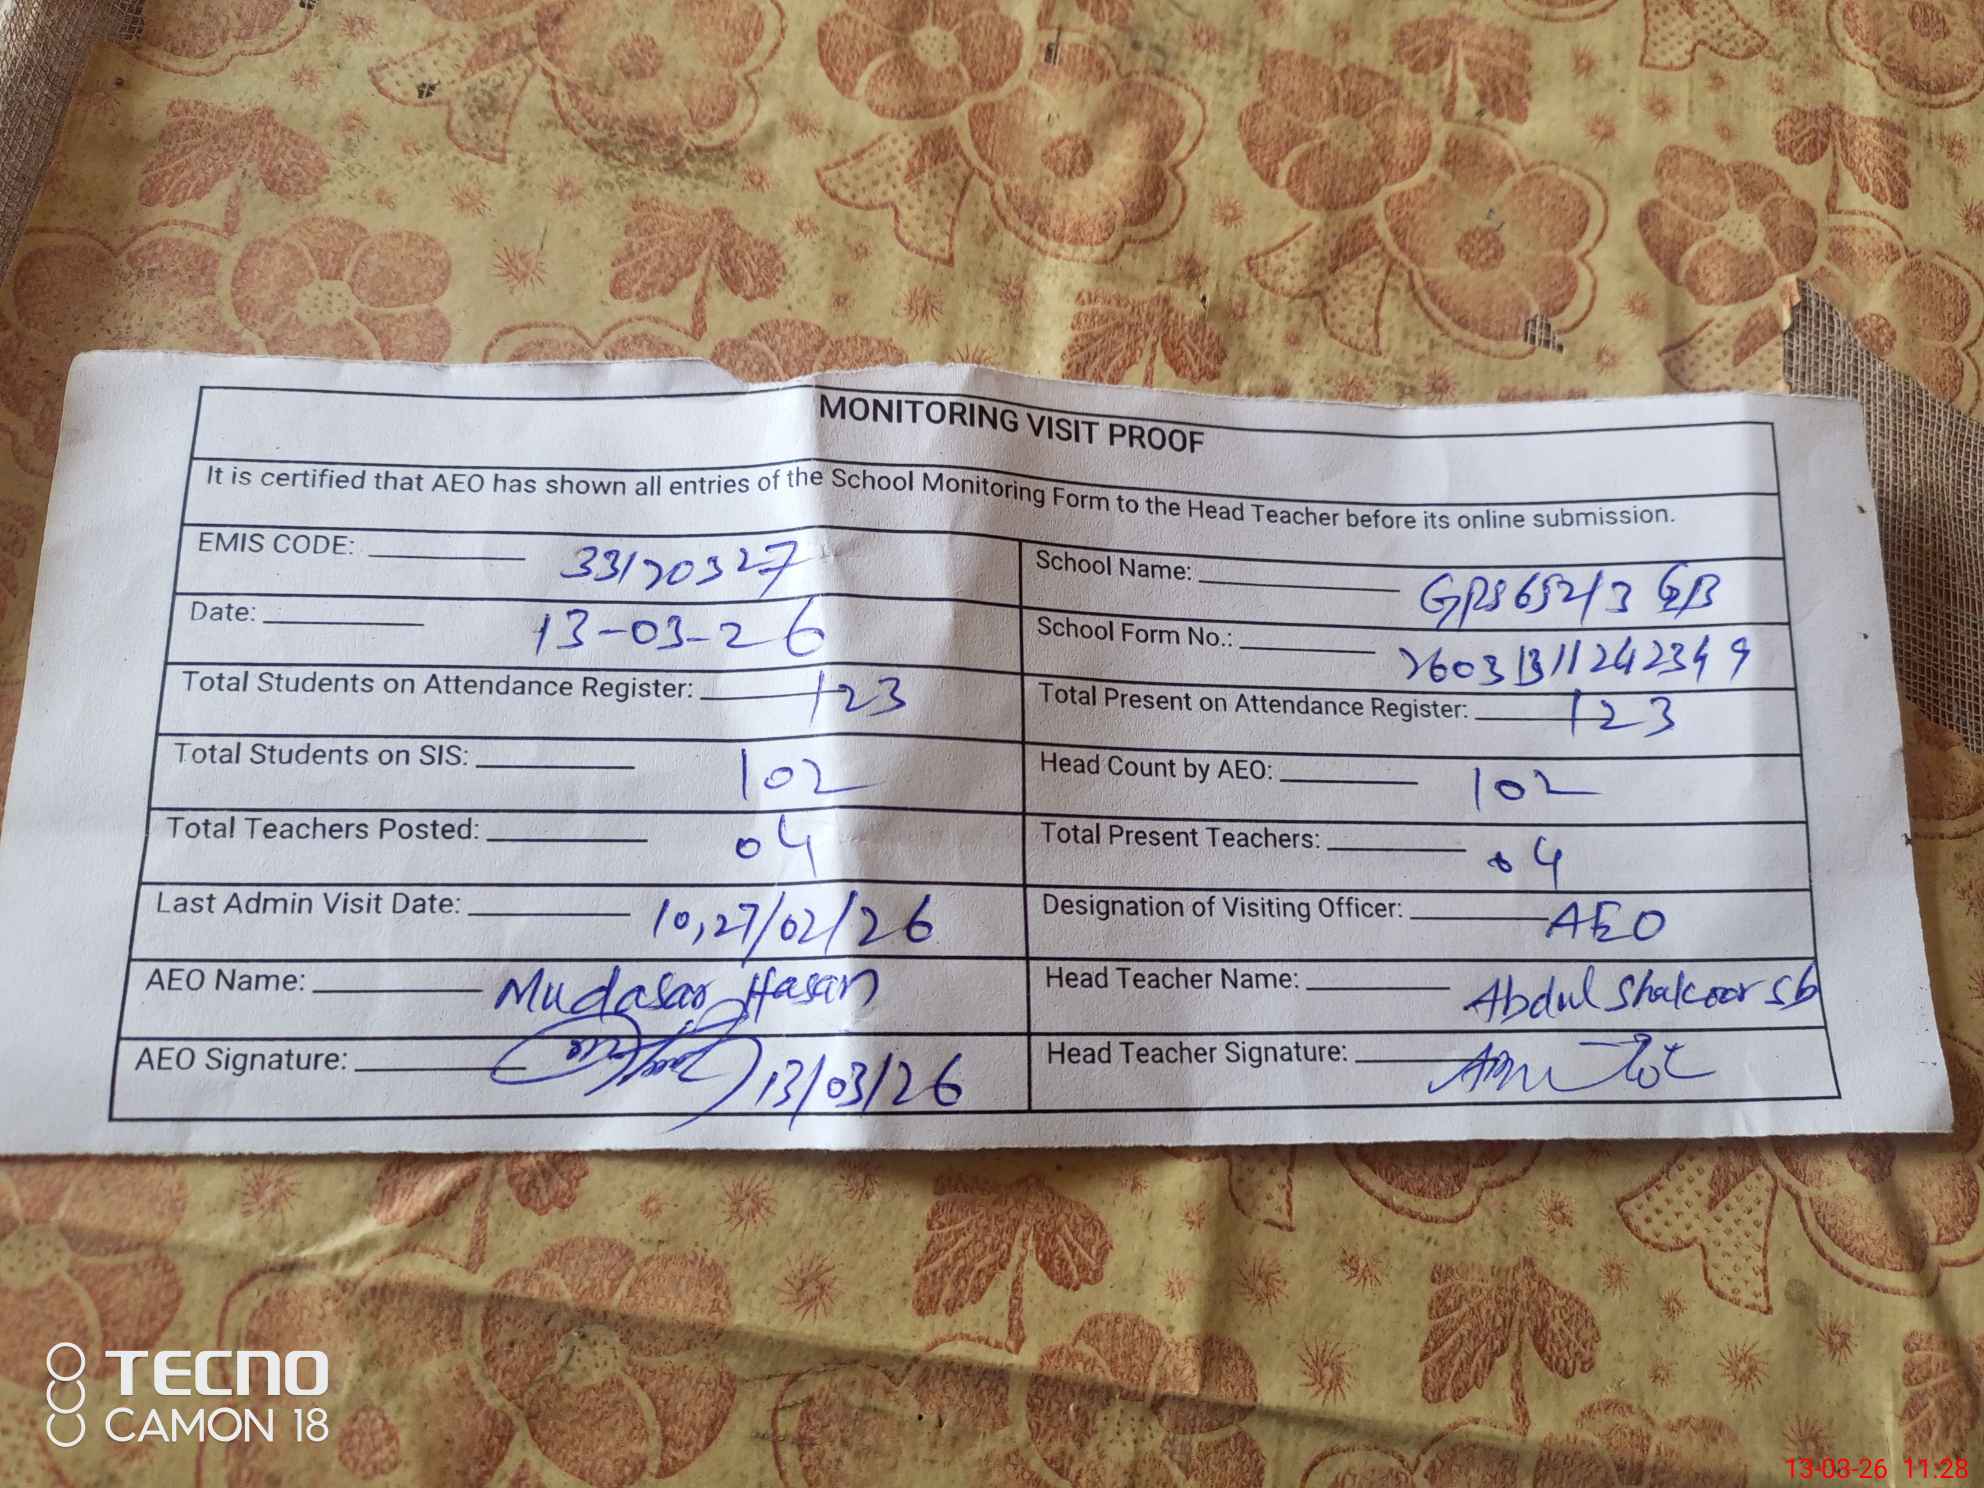 MONITORING VISIT PROOF
It is certified that AEO has shown all entries of the School Monitoring Form to the Head Teacher before its online submission.
EMIS CODE: 33170327
School Name: GPS 652/3 GB
Date: 13-03-26
School Form No.: 26031311242349
Total Students on Attendance Register: 123
Total Present on Attendance Register: 123
Total Students on SIS: 102
Head Count by AEO: 102
Total Teachers Posted: 04
Total Present Teachers: 04
Last Admin Visit Date: 10,27/02/26
Designation of Visiting Officer: AEO
AEO Name: Mudasar Hasan
Head Teacher Name: Abdul Shakoor sb
AEO Signature: 13/03/26
Head Teacher Signature:
TECNO
CAMON 18
13-03-26 11:28